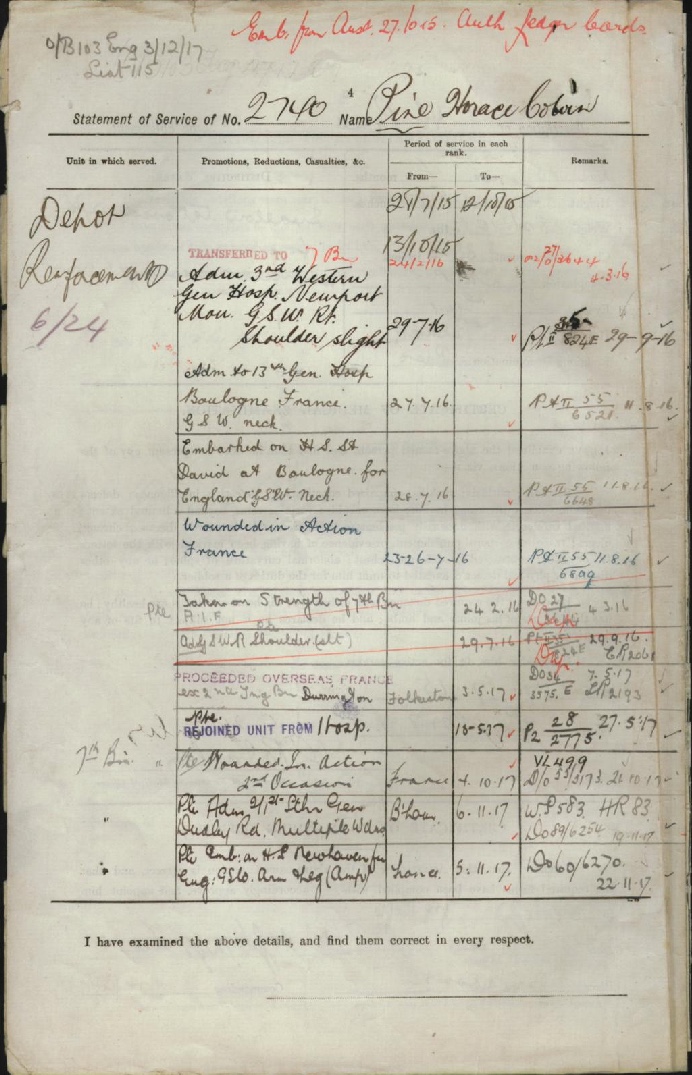 Emb. from Aust. 27.10.15. Auth
Cards
O/B103 Eng 3/12/17
List 115
Statement of Service of No. 2740 Name Pine Horace
Unit in which served. Promotions, Reductions, Casualties, &c. Period of service in each rank. Remarks.
From— To—
Depot 28/7/15 12/10/15
13/10/15
TRANSFERRED TO 7 Bn 24/2/16 4.3.16
Reinforcements Adm. 3rd Western
Gen Hosp. Newport
6/24 Mon. G.S.W. Rt.
Shoulder slight 29-7-16 Pt II 35 824E 29-9-16
Adm to 13th Gen. Hosp
Boulogne France. 27.7.16. Pt II 55 11.8.16.
G S W. neck.
Embarked on H. S. St
David at Boulogne. for
England G.S.W. Neck. 28.7.16 Pt II 55 11.8.16.
Wounded in Action
France 23-26-7-16 Pt II 55 11.8.16
Pte Taken on Strength of 7th Bn 24.2.16 DO 27 4 3.16
A.I.F
G S W R Shoulder (slt) 29.7.16 29.9.16.
PROCEEDED OVERSEAS FRANCE 7.5.17
ex 2nd Tng Bn Durrington Folkestone 3.5.17
Pte.
REJOINED UNIT FROM Hosp. 13-5-17 P2 28 2775. 27.5.17
7th Bn. Pte Wounded In Action VL499
2nd Occasion France 4.10.17
" Pte Adm 2/1st Sthn Gen B'ham 6.11.17. W.P583. HR 83.
Dudley Rd. Multiple Wds Do89/6254 19-11-17.
" Pte Emb: on H.S Newhaven for
Eng: GSW. Arm & Leg (Amp) France. 5.11.17. Do60/6270.
22.11.17.
I have examined the above details, and find them correct in every respect.